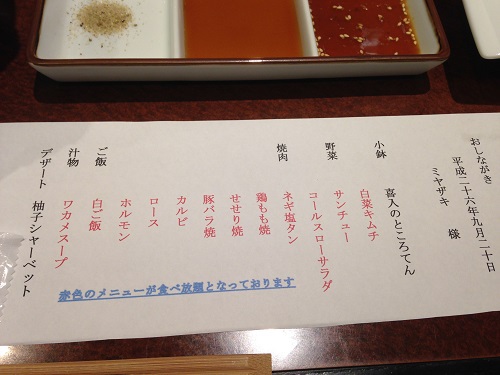 おしながき
平成二十六年九月二十日
ミヤザキ 様
小鉢 喜入のところてん
白菜キムチ
野菜 サンチュー
コールスローサラダ
焼肉 ネギ塩タン
鶏もも焼
せせり焼
豚バラ焼
カルビ
ロース
ホルモン
ご飯 白ご飯
汁物 ワカメスープ
デザート 柚子シャーベット
赤色のメニューが食べ放題となっております